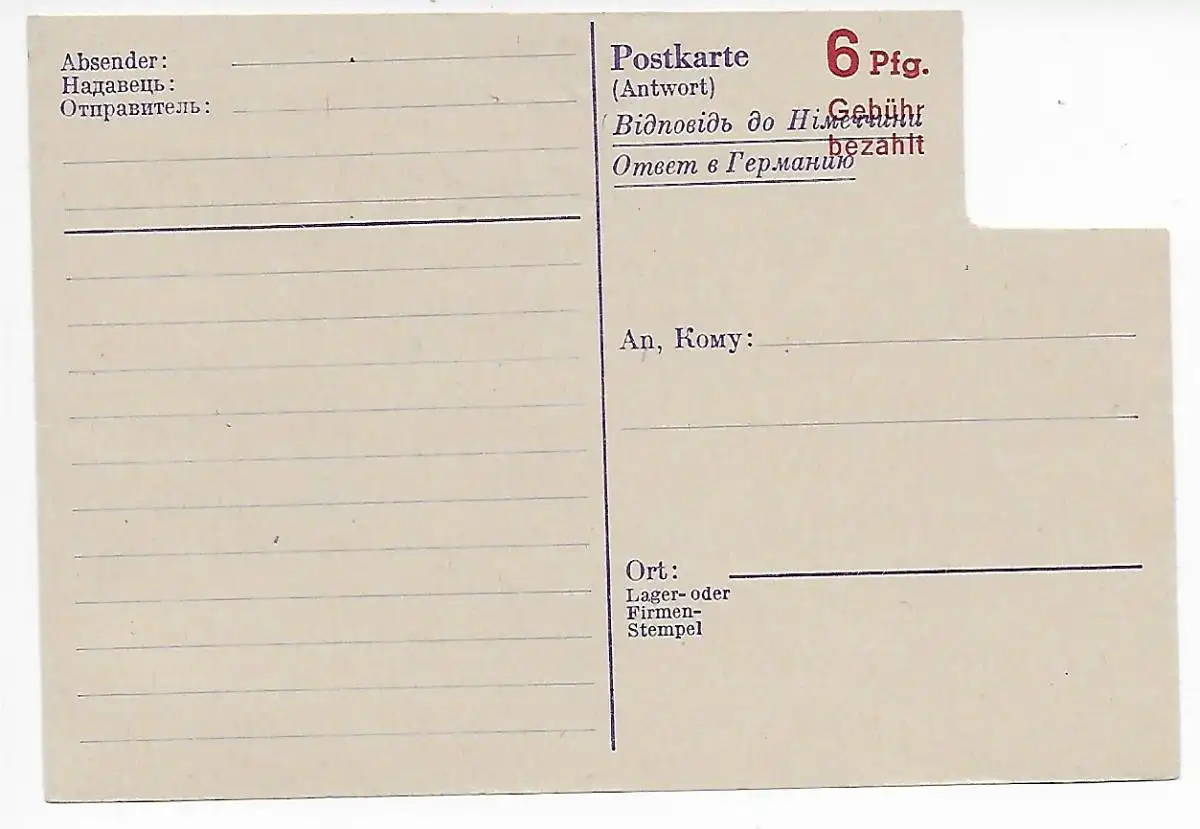 Absender:
Надавець:
Отправитель:
Postkarte
(Antwort)
Відповідь до Німеччини
Ответ в Германию
6 Pfg.
Gebühr
bezahlt
An, Кому:
Ort:
Lager- oder
Firmen-
Stempel